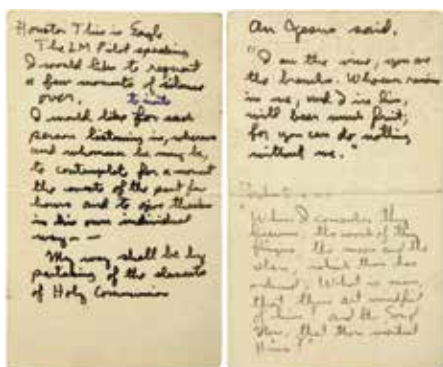 Houston This is Eagle
The LM Pilot speaking
I would like to request
a few moments of silence
over.
to invite
I would like for each
person listening in, wherever
and whomever he may be,
to contemplate for a moment
the events of the past few
hours and to give thanks
in his own individual
way – –
My way shall be by
partaking of the elements
of Holy Communion
As Jesus said,
"I am the vine, you are
the branches. Whoever remains
in me, and I in him,
will bear much fruit;
for you can do nothing
without me."
"When I consider thy
heavens, the work of thy
fingers, the moon and the
stars, which thou has
ordained; What is man,
that thou art mindful
of him? and the Son of
Man, that thou visitest
Him?"